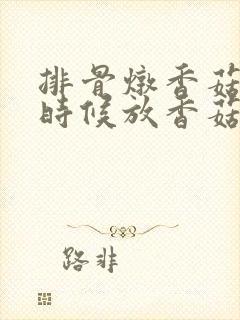 排骨燉香菇
時候放香菇
路非